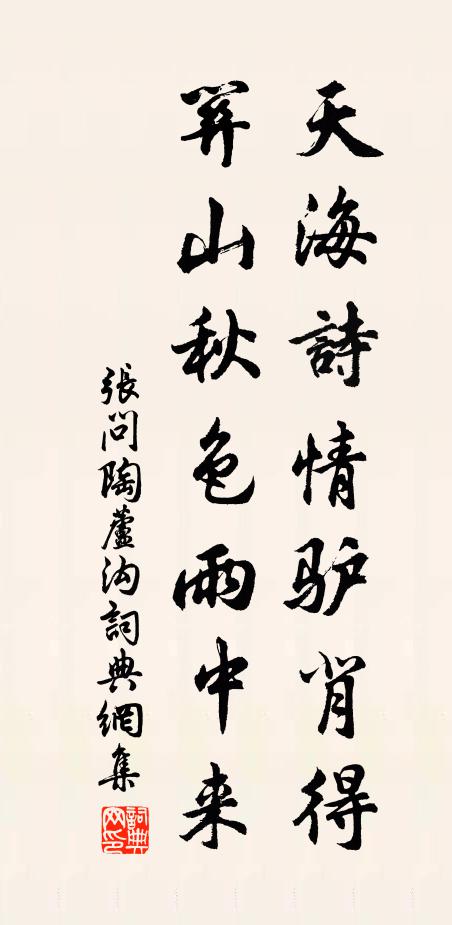 天海詩情驴背得
关山秋色雨中来
張問陶蘆沟詞典網集
詞典网印